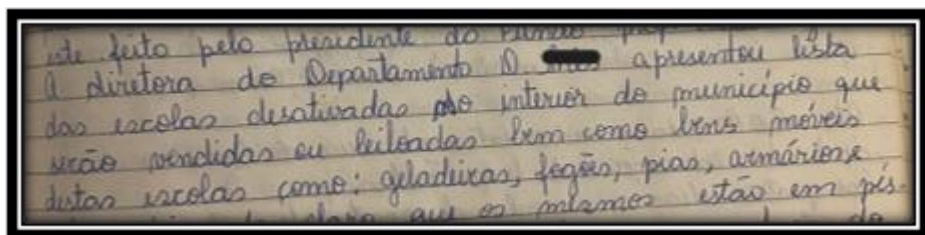 este feito pelo presidente do
A diretora do Departamento D. apresentou lista
das escolas desativadas no interior do município que
serão vendidas ou leiloadas bem como bens móveis
destas escolas como: geladeiras, fogões, pias, armários e
que os mesmos estão em pés